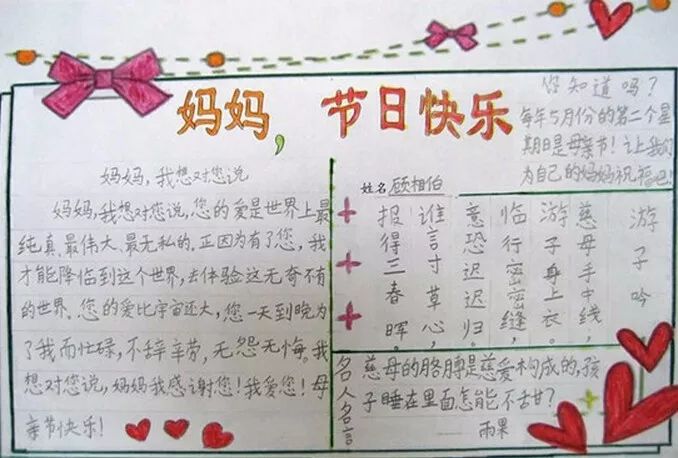 妈妈，节日快乐
妈妈，我想对您说
妈妈，我想对您说，您的爱是世界上最
纯真、最伟大、最无私的。正因为有了您，我
才能降临到这个世界，去体验这无奇不有
的世界。您的爱比宇宙还大，您一天到晚为
了我而忙碌，不辞辛劳，无怨无悔。我
想对您说，妈妈我感谢您！我爱您！母
亲节快乐！
你知道吗？
每年5月份的第二个星
期日是母亲节！让我们
为自己的妈妈祝福吧！
姓名 顾相伯
游子吟
慈母手中线，
游子身上衣。
临行密密缝，
意恐迟迟归。
谁言寸草心，
报得三春晖。
名人名言
慈母的胳膊是慈爱构成的，孩
子睡在里面怎能不甜？
雨果